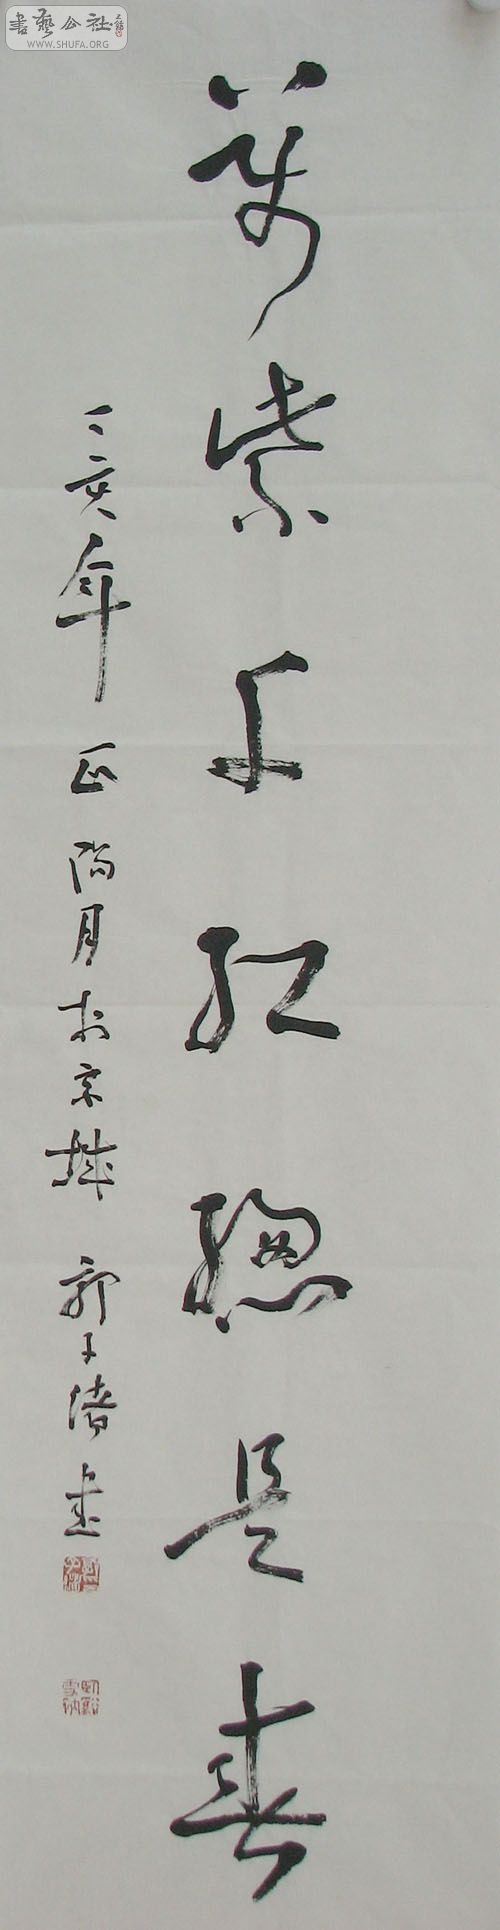 書藝公社
WWW.SHUFA.ORG
萬紫千紅總是春
丁亥年 正陽月於京城 郭子緒書